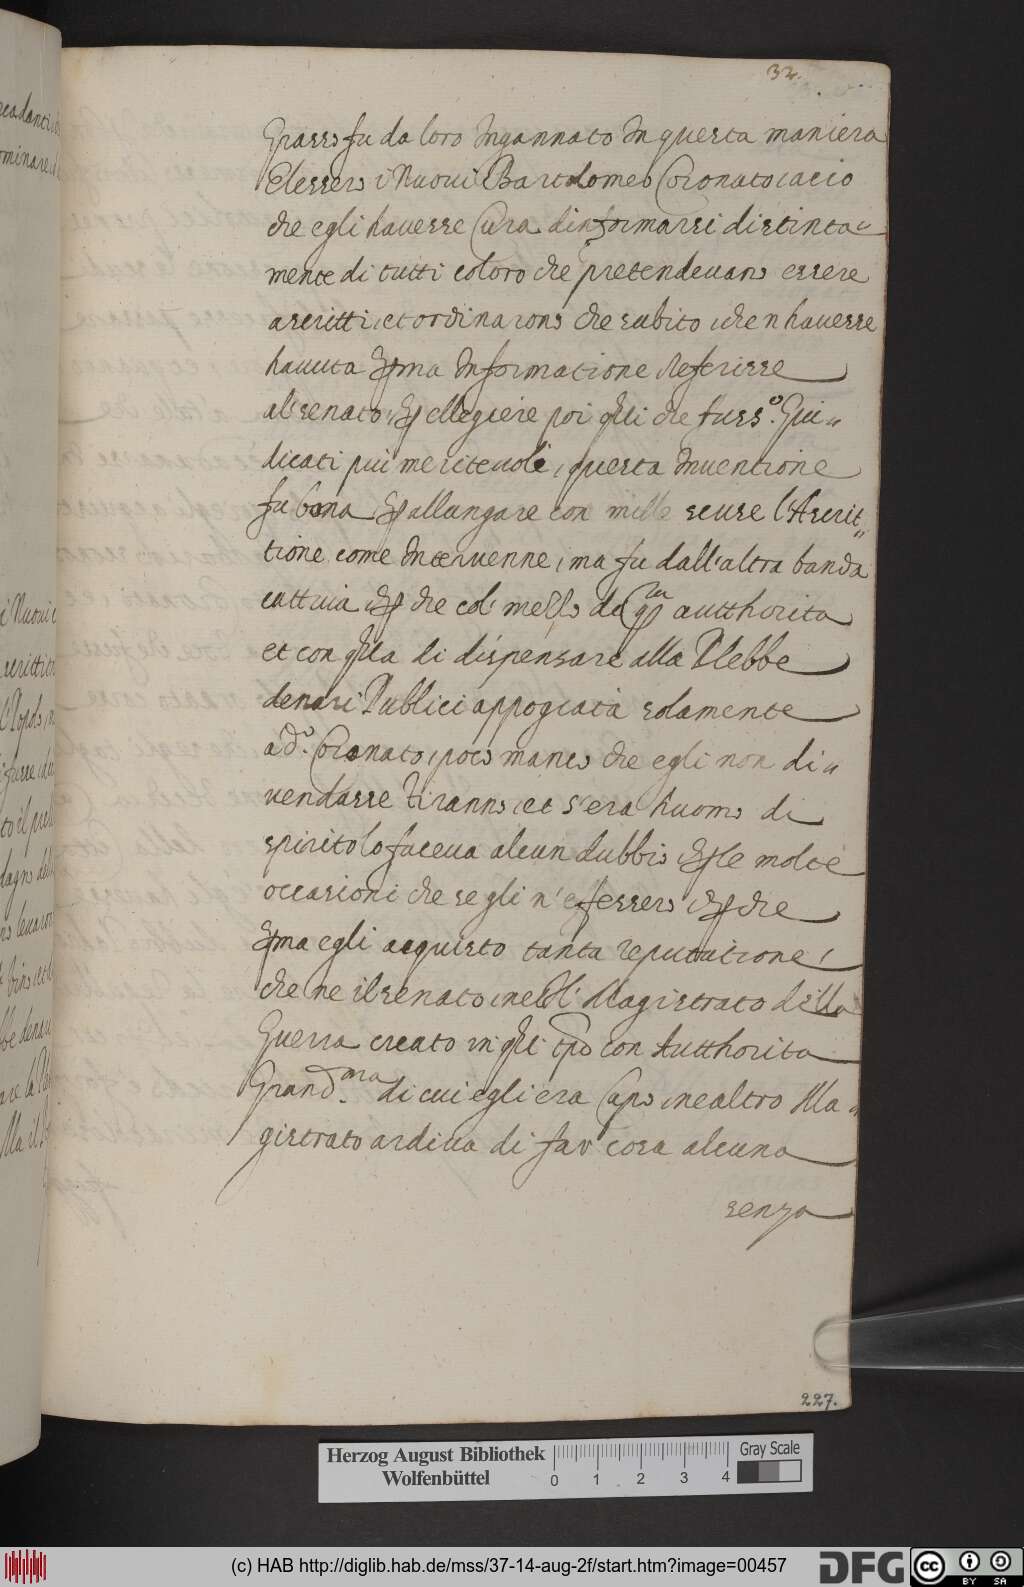 32.
Grasso fu da loro Ingannato In questa maniera
Elessero i Nuovi Bartolomeo Coronato, acio
che egli havesse Cura dinformarsi distinta-
mente di tutti coloro che pretendevano essere
ascritti, et ordinarono che subito, che n havesse
havuta Informatione Referisse
al senato, ellegiere poi che fuss.o Giu-
dicati più meritevoli, questa Inventione
fu bona allungare con mille scuse l'Ascrit-
tione come Intervenne, ma fu dall'altra banda
cattiva che col' autthorita
et con di dispensare alla Plebbe
denari Publici appogiata solamente
a d.o Coronato, poco manco che egli non di-
vendasse Tiranno, et s'era huomo di
spirito lo faceva alcun dubbio molte
occasioni che se gli n' offersero che
egli acquisto tanta reputatione,
che ne il senato, ne Magistrato della
Guerra creato in con Autthorita
Grand.ma di cui egli era Capo, ne altro Ma-
gistrato ardiva di far cosa alcuna
senza
227.
i Nuovi
Herzog August Bibliothek
Wolfenbüttel
0 1 2 3 4
Gray Scale
(c) HAB http://diglib.hab.de/mss/37-14-aug-2f/start.htm?image=00457
DFG
cc BY SA